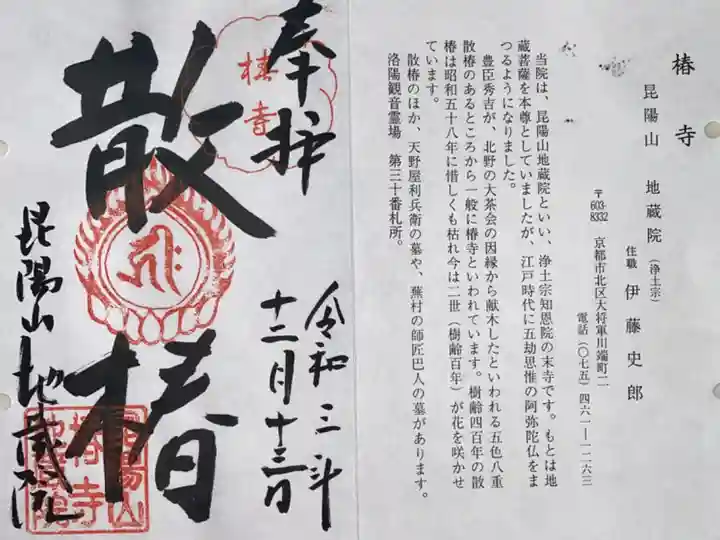 椿寺
昆陽山 地蔵院(浄土宗)
住職 伊藤史郎
〒603-8332 京都市北区大将軍川端町二
電話(〇七五)四六一―一二六三
当院は、昆陽山地蔵院といい、浄土宗知恩院の末寺です。もとは地
蔵菩薩を本尊としていましたが、江戸時代に五劫思惟の阿弥陀仏をま
つるようになりました。
豊臣秀吉が、北野の大茶会の因縁から献木したといわれる五色八重
散椿のあるところから一般に椿寺といわれています。樹齢四百年の散
椿は昭和五十八年に惜しくも枯れ今は二世(樹齢百年)が花を咲かせ
ています。
散椿のほか、天野屋利兵衛の墓や、蕪村の師匠巴人の墓があります。
洛陽観音霊場 第三十番札所。
奉拝
椿寺
令和三年
十二月十三日
散椿
昆陽山地蔵院
昆陽山
椿寺
地蔵院